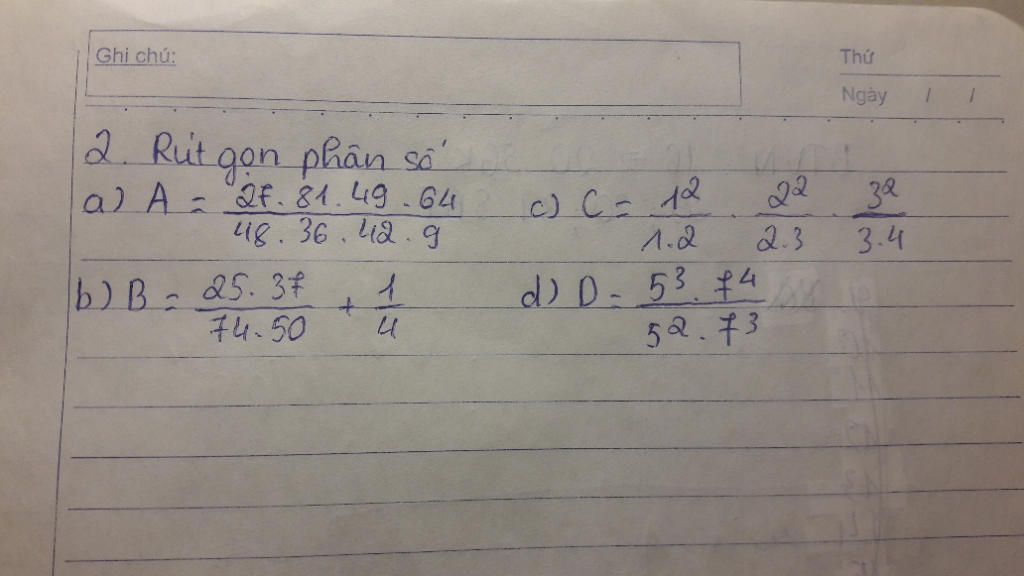 Ghi chú:
Thứ
Ngày / /
2. Rút gọn phân số
a) A = 27.81.49.64 / 48.36.42.9
c) C = 1² / 1.2 . 2² / 2.3 . 3² / 3.4
b) B = 25.37 / 74.50 + 1 / 4
d) D = 5³.7⁴ / 5².7³